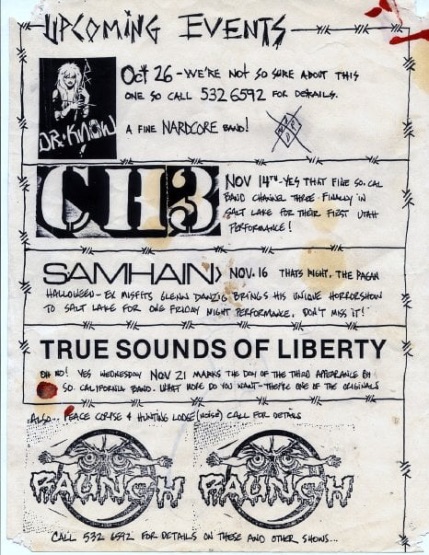 UPCOMING EVENTS
DR. KNOW
Oct 26 - WE'RE NOT SO SURE ABOUT THIS
ONE SO CALL 532 6592 FOR DETAILS.
A FINE NARDCORE BAND!
NARD
CH3
NOV 14TH - YES THAT FINE SO. CAL
BAND CHANNEL THREE. FINALLY IN
SALT LAKE FOR THEIR FIRST UTAH
PERFORMANCE!
SAMHAIN
NOV. 16 THATS RIGHT, THE PAGAN
HALLOWEEN - EX MISFITS GLENN DANZIG BRINGS HIS UNIQUE HORRORSHOW
TO SALT LAKE FOR ONE FRIDAY NIGHT PERFORMANCE, DON'T MISS IT!
TRUE SOUNDS OF LIBERTY
OH NO! YES WEDNESDAY NOV 21 MARKS THE DAY OF THE THIRD APPEARANCE BY
SO. CALIFORNIA BAND. WHAT MORE DO YOU WANT - THEY'RE ONE OF THE ORIGINALS
ALSO... PEACE CORPSE & HUNTING LODGE (NOISE) CALL FOR DETAILS
RAUNCH RAUNCH
CALL 532 6592 FOR DETAILS ON THESE AND OTHER SHOWS...